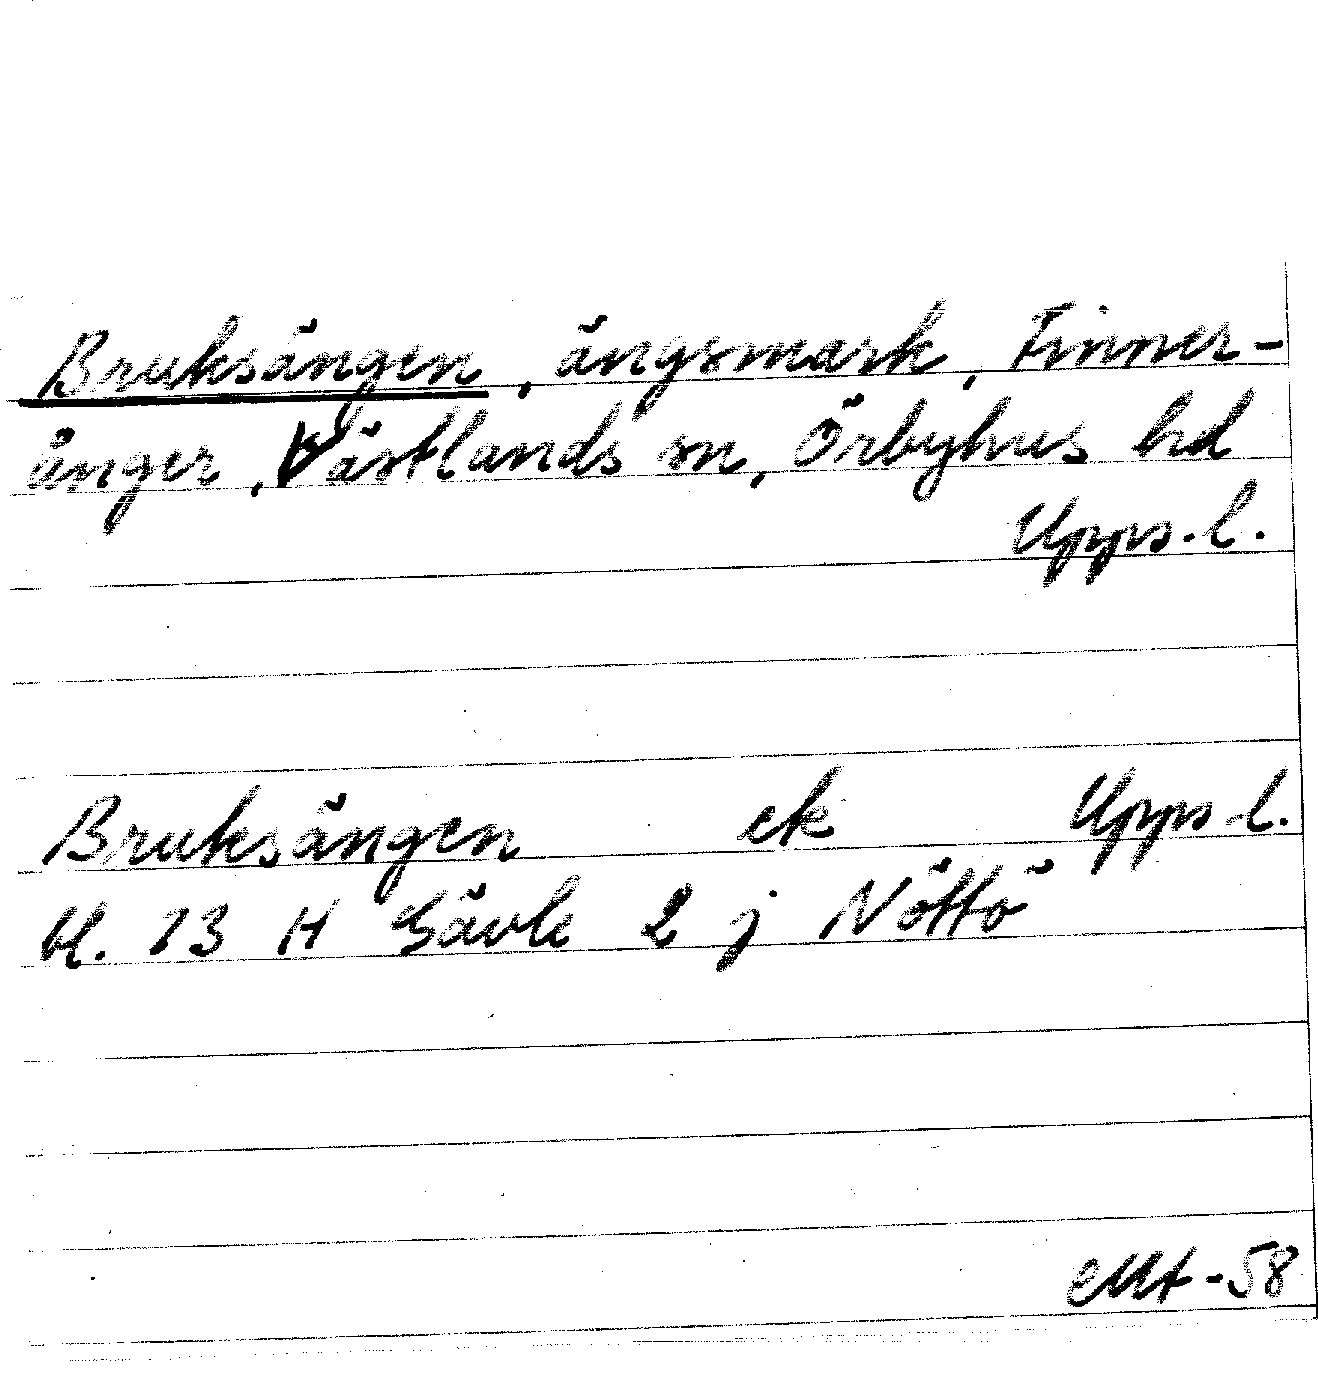 Bruksängen, ängsmark, Finner-
ånger, Västlands sn, Örbyhus hd
Upps. l.
Bruksängen ek Upps l.
bl. 13 H Gävle 2 j Nöttö
-58